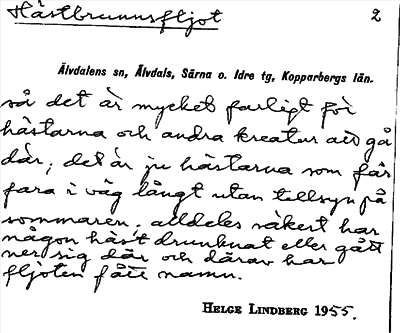 Hästbrunnsfljot 2
Älvdalens sn, Älvdals, Särna o. Idre tg, Kopparbergs län.
så det är mycket farligt för
hästarna och andra kreatur att gå
där; det är ju hästarna som får
fara i väg långt utan tillsyn på
sommaren; alldeles säkert har
någon häst drunknat eller gått
ner sig där och därav har
fljoten fått namn.
HELGE LINDBERG 1955.